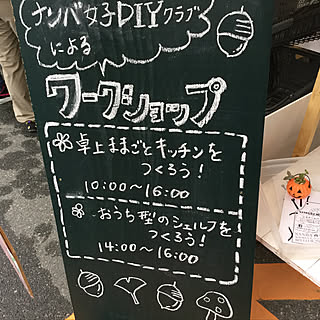 ナンバ女子DIYクラブ
による
ワークショップ
卓上ままごとキッチンを
つくろう!
10:00〜16:00
おうち型のシェルフを
つくろう!
14:00〜16:00